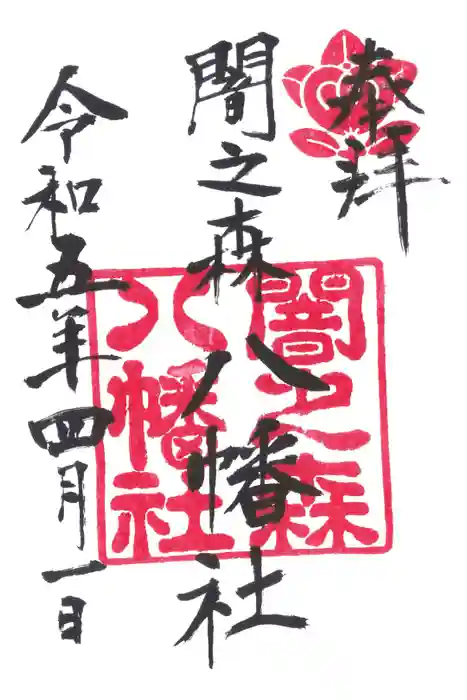 奉拝
闇之森八幡社
令和五年四月一日
闇之森
八幡社